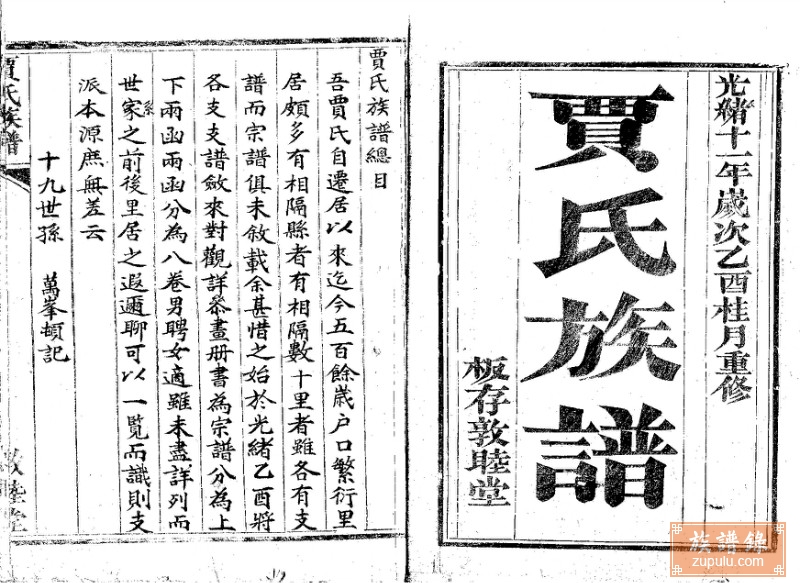 光緒十一年歲次乙酉桂月重修
賈氏族譜
板存敦睦堂
賈氏族譜總目
吾賈氏自遷居以來迄今五百餘歲戶口繁衍里
居頗多有相隔縣者有相隔數十里者雖各有支
譜而宗譜俱未敘載余甚惜之始於光緒乙酉將
各支支譜斂來對觀詳叅畫册書為宗譜分為上
下兩函兩函分為八卷男聘女適雖未盡詳列而
世系家之前後里居之遐邇聊可以一覽而識則支
派本源庶無差云
十九世孫 萬峯頓記
賈氏族譜
敦睦堂
族譜錄
zupulu.com